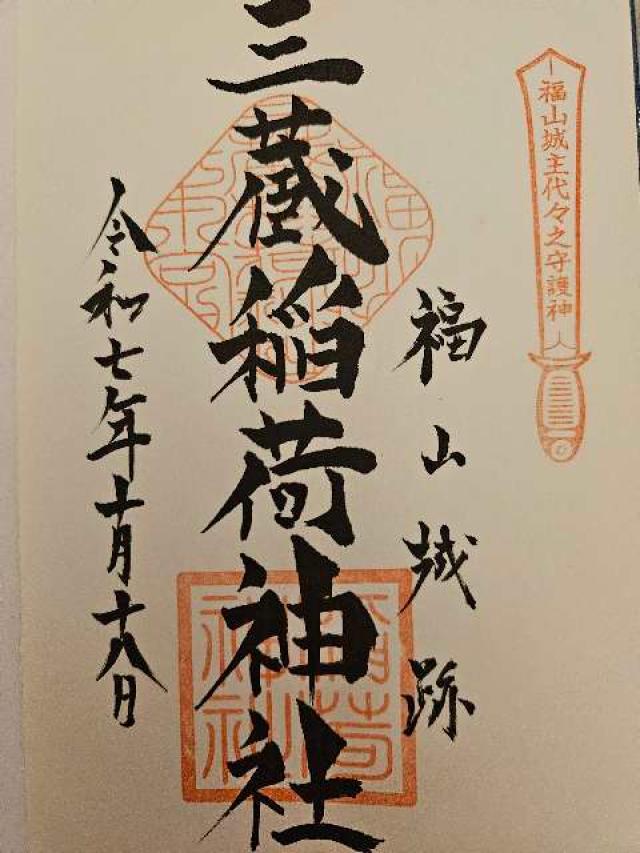 福山城主代々之守護神
福山城跡
三蔵稲荷神社
令和七年十月十八日
稲荷
神社